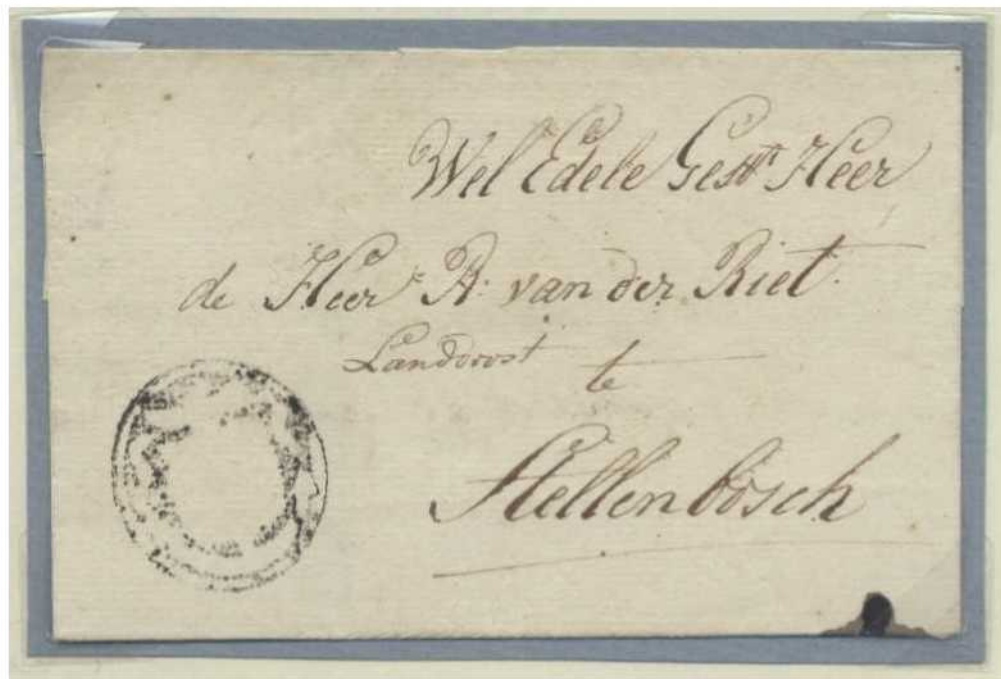 Wel Edele Gestr Heer
de Heer R: van der Riet
Landdrost te
Stellenbosch